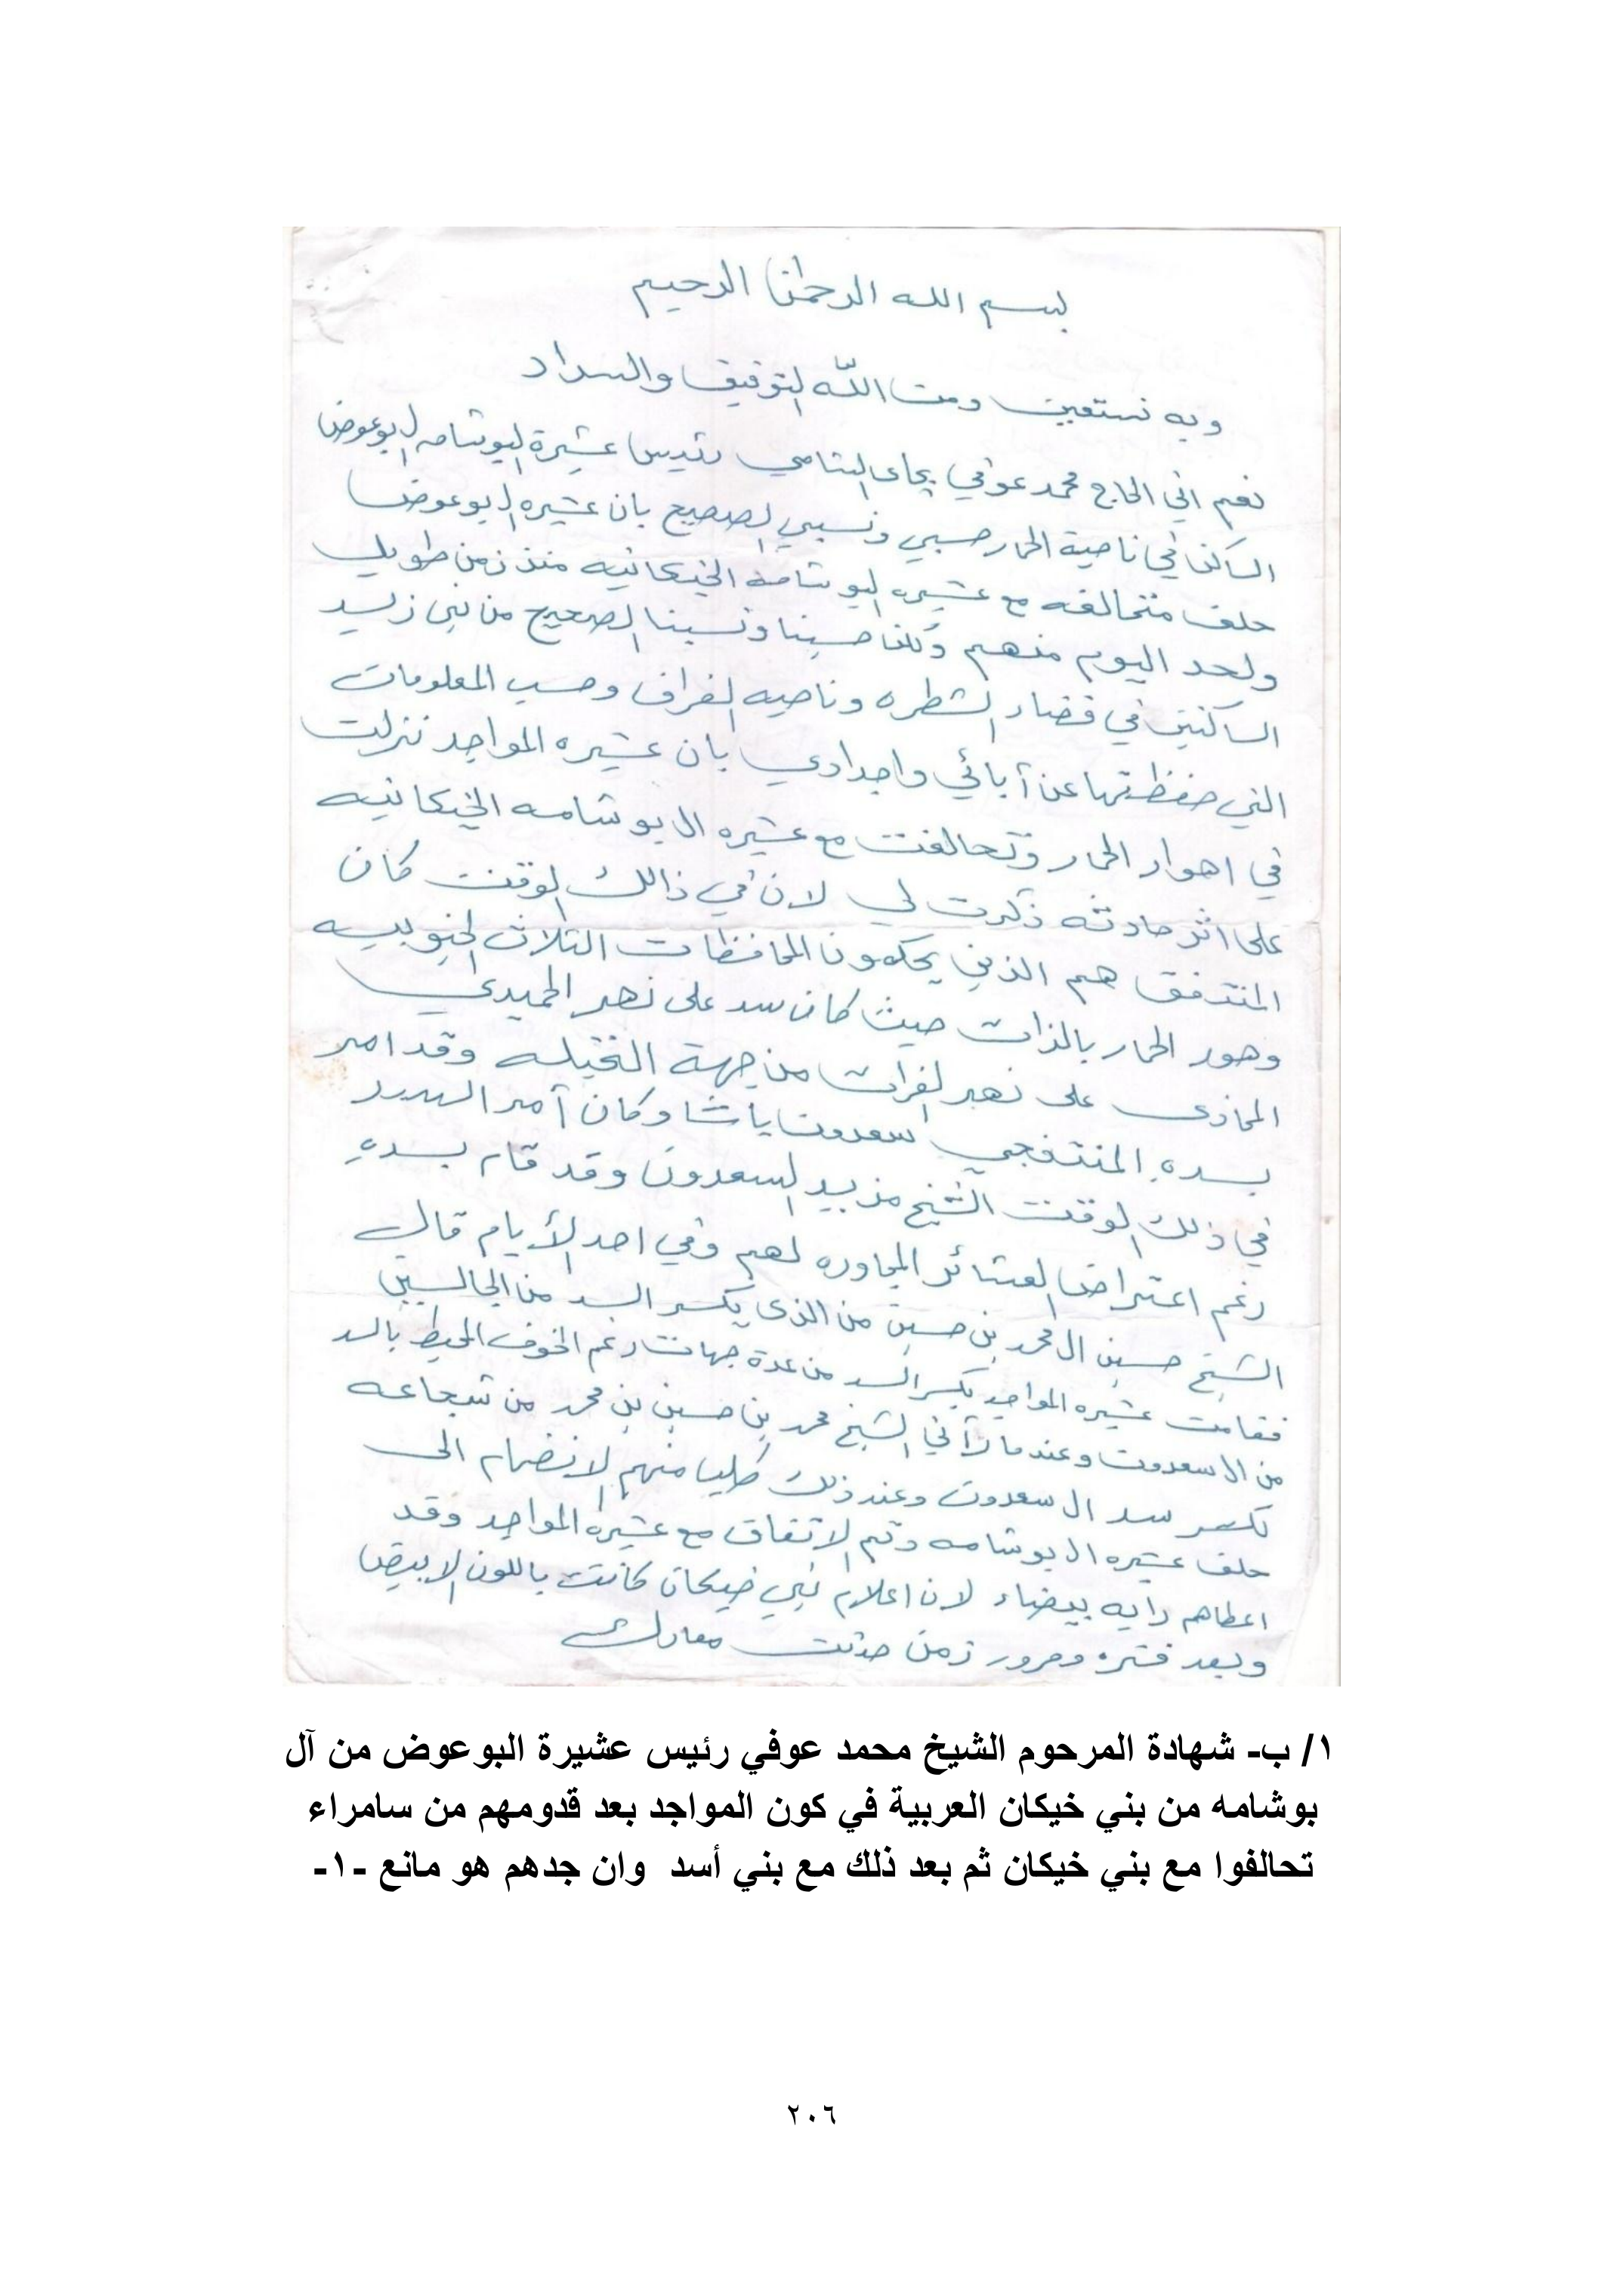 بسم الله الرحمن الرحيم
وبه نستعين ومن الله التوفيق والسداد
نعم اني الحاج محمد عوفي بجاي الشامي رئيس عشيرة البوشامه البوعوض
الساكن في ناحية الحمار حسبي ونسبي الصحيح بان عشيره البوعوض
حلف متحالفه مع عشيره البوشامة الخيكانيه منذ زمن طويل
ولحد اليوم منهم ولكن حسبنا ونسبنا الصحيح من بني زيد
الساكنين في قضاء الشطره وناحيه الغراف وحسب المعلومات
التي حفظتها عن آبائي واجدادي بان عشيره المواجد نزلت
في اهوار الحمار وتحالفت مع عشيره ال بوشامه الخيكانيه
على اثر حادثه ذكرت لي لان في ذالك الوقت كان
المنتدفق هم الذين يحكمون المحافظات الثلاث الجنوبيه
وهور الحمار بالذات حيث كان سد على نهر الحميدي
المحاذي على نهر الفرات من جهة النخيله وقد امر
بسده المنتفجي سعدون باشا وكان آمر السدد
في ذلك الوقت الشيخ مزيد السعدون وقد قام بسده
رغم اعتراض العشائر المجاوره لهم وفي احد الأيام قال
الشيخ حسين ال محمد بن حسين من الذي يكسر السد من الجالسين
فقامت عشيره المواجد بكسر السد من عدة جهات رغم الخوف المحيط بالسد
من ال سعدون وعندما رآني الشيخ محمد بن حسين بن محمد من شجاعه
لكسر سد ال سعدون وعند ذلك طلبا منهم الانضمام الى
حلف عشيره ال بوشامه وتم الاتفاق مع عشيره المواجد وقد
اعطاهم رايه بيضاء لان اعلام بني خيكان كانت باللون الابيض
وبعد فتره ومرور زمن حدثت معارك
١/ ب- شهادة المرحوم الشيخ محمد عوفي رئيس عشيرة البوعوض من آل
بوشامه من بني خيكان العربية في كون المواجد بعد قدومهم من سامراء
تحالفوا مع بني خيكان ثم بعد ذلك مع بني أسد وان جدهم هو مانع -١-
٢٠٦